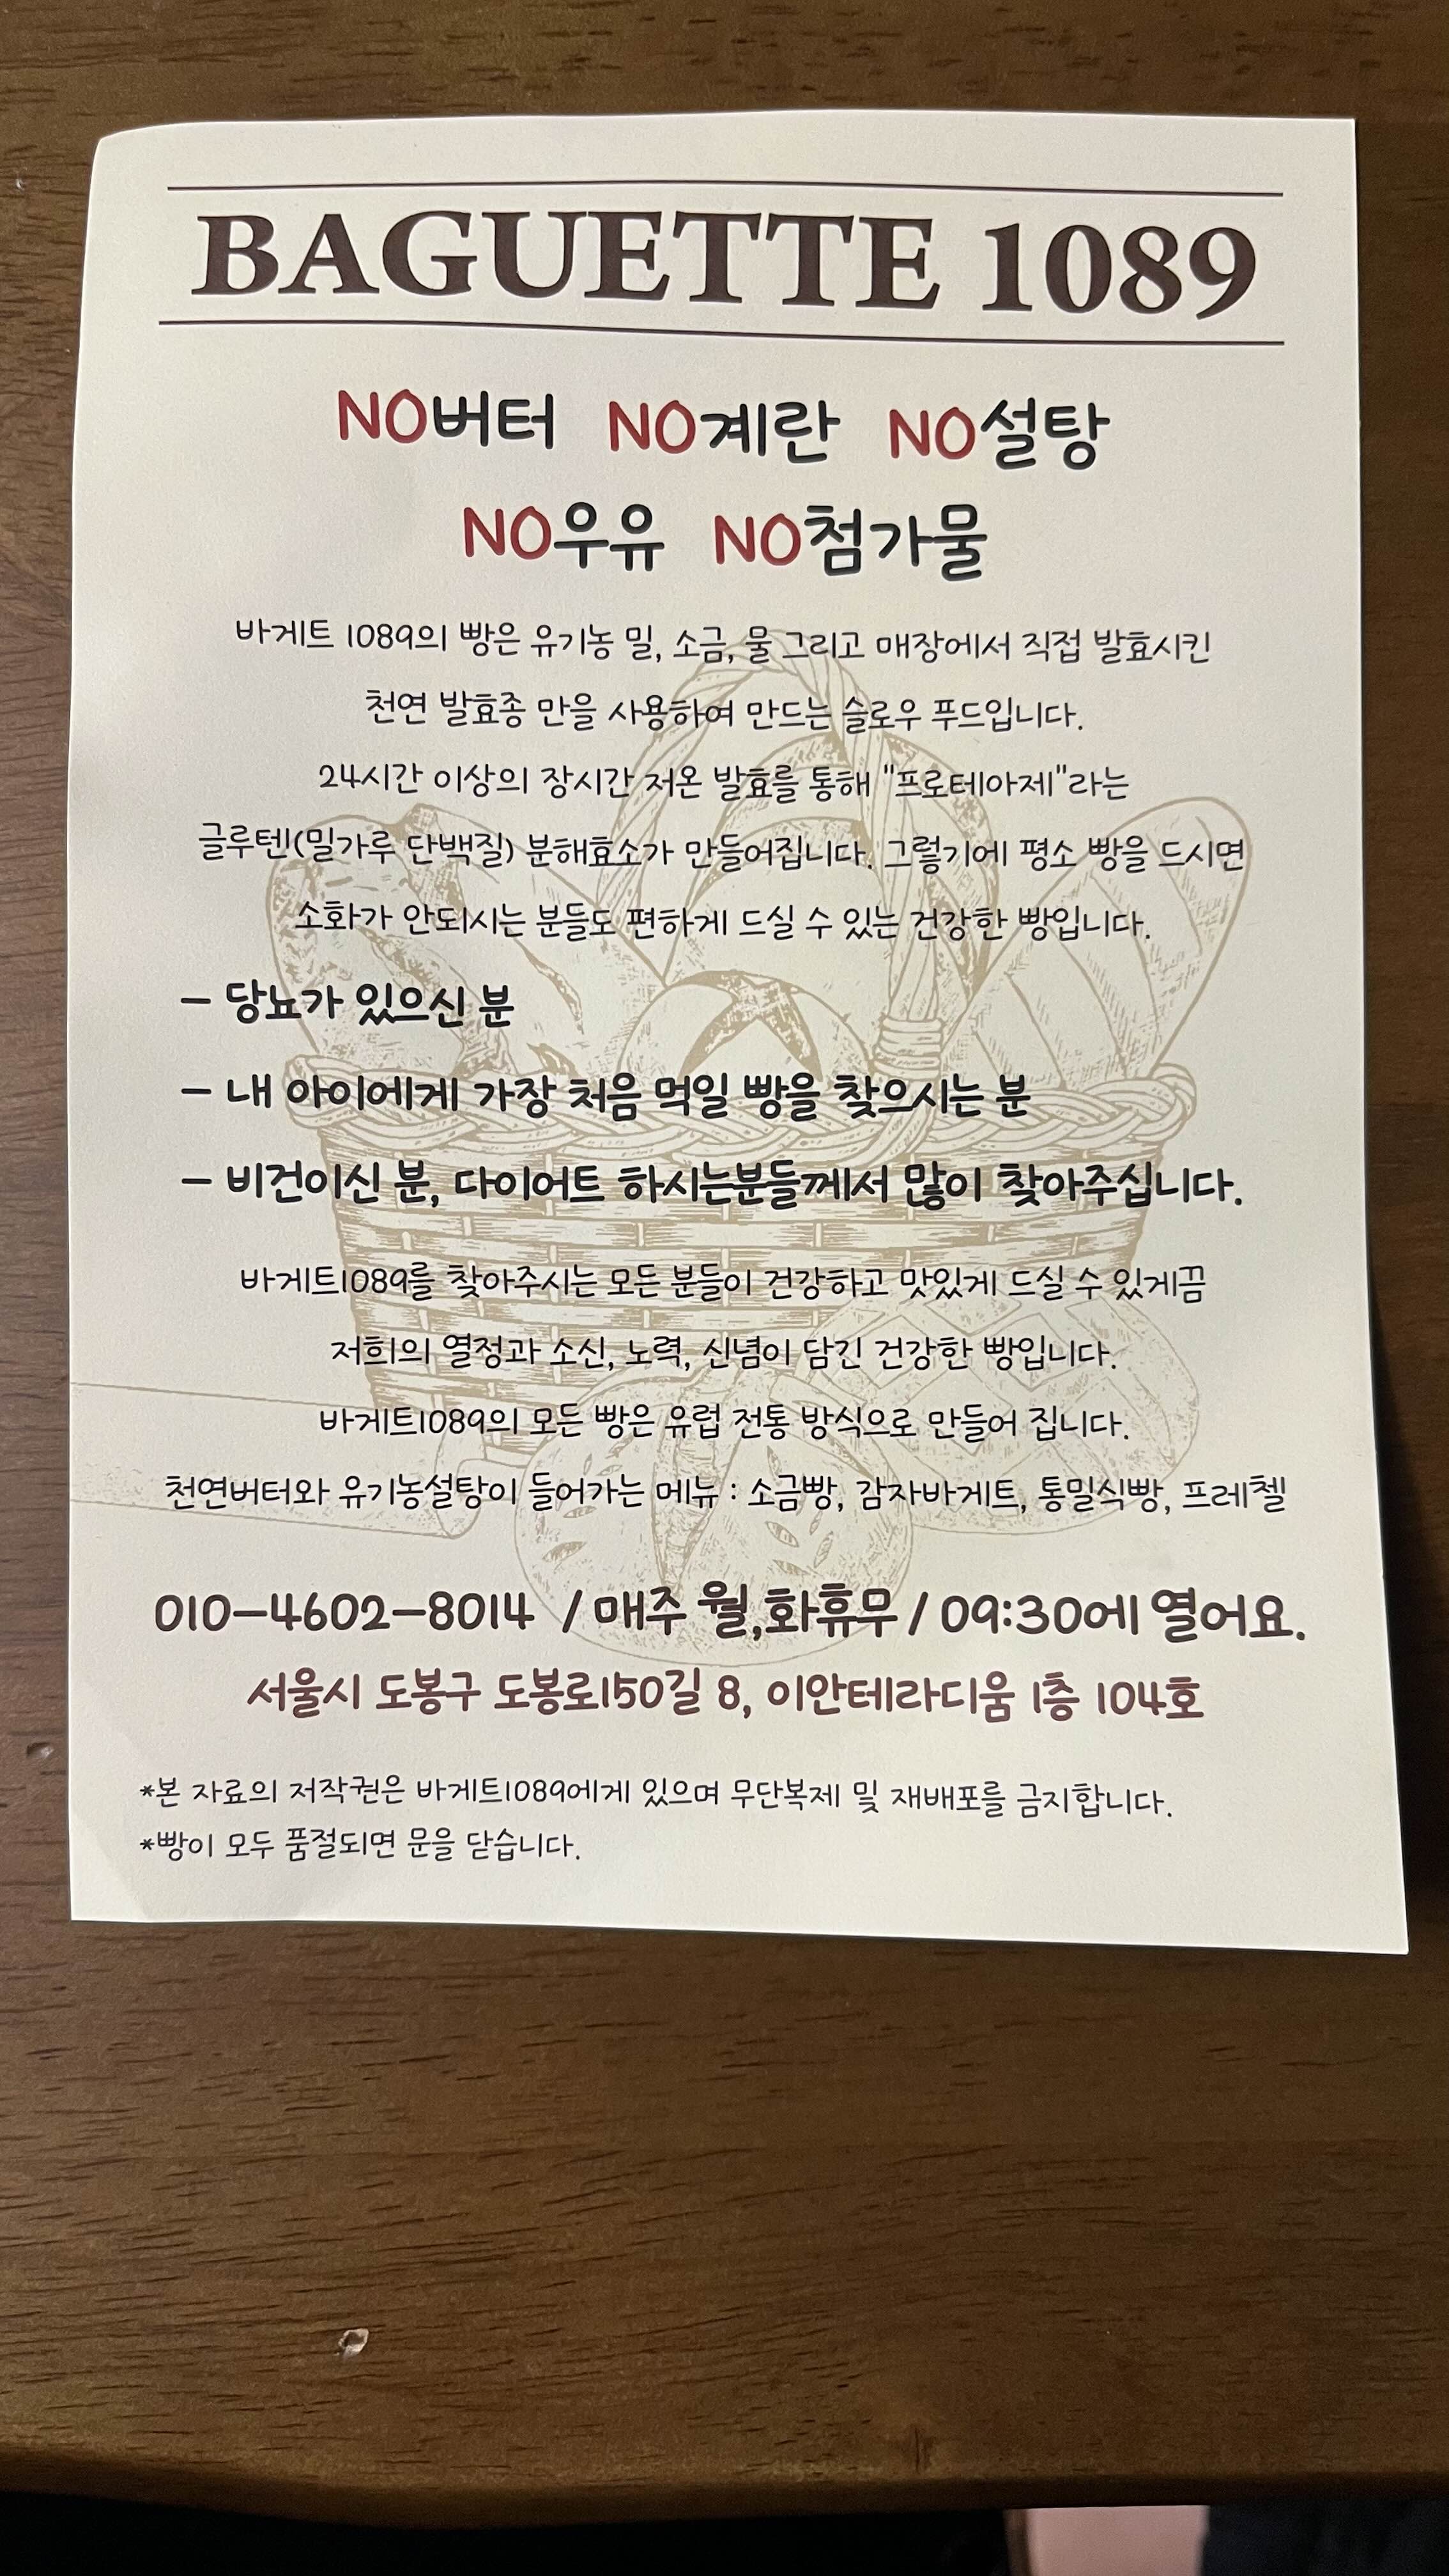 BAGUETTE 1089
NO버터 NO계란 NO설탕
NO우유 NO첨가물
바게트 1089의 빵은 유기농 밀, 소금, 물 그리고 매장에서 직접 발효시킨
천연 발효종 만을 사용하여 만드는 슬로우 푸드입니다.
24시간 이상의 장시간 저온 발효를 통해 "프로테아제"라는
글루텐(밀가루 단백질) 분해효소가 만들어집니다. 그렇기에 평소 빵을 드시면
소화가 안되시는 분들도 편하게 드실 수 있는 건강한 빵입니다.
– 당뇨가 있으신 분
– 내 아이에게 가장 처음 먹일 빵을 찾으시는 분
– 비건이신 분, 다이어트 하시는분들께서 많이 찾아주십니다.
바게트1089를 찾아주시는 모든 분들이 건강하고 맛있게 드실 수 있게끔
저희의 열정과 소신, 노력, 신념이 담긴 건강한 빵입니다.
바게트1089의 모든 빵은 유럽 전통 방식으로 만들어 집니다.
천연버터와 유기농설탕이 들어가는 메뉴 : 소금빵, 감자바게트, 통밀식빵, 프레첼
010-4602-8014 / 매주 월,화휴무 / 09:30에 열어요.
서울시 도봉구 도봉로150길 8, 이안테라디움 1층 104호
*본 자료의 저작권은 바게트1089에게 있으며 무단복제 및 재배포를 금지합니다.
*빵이 모두 품절되면 문을 닫습니다.